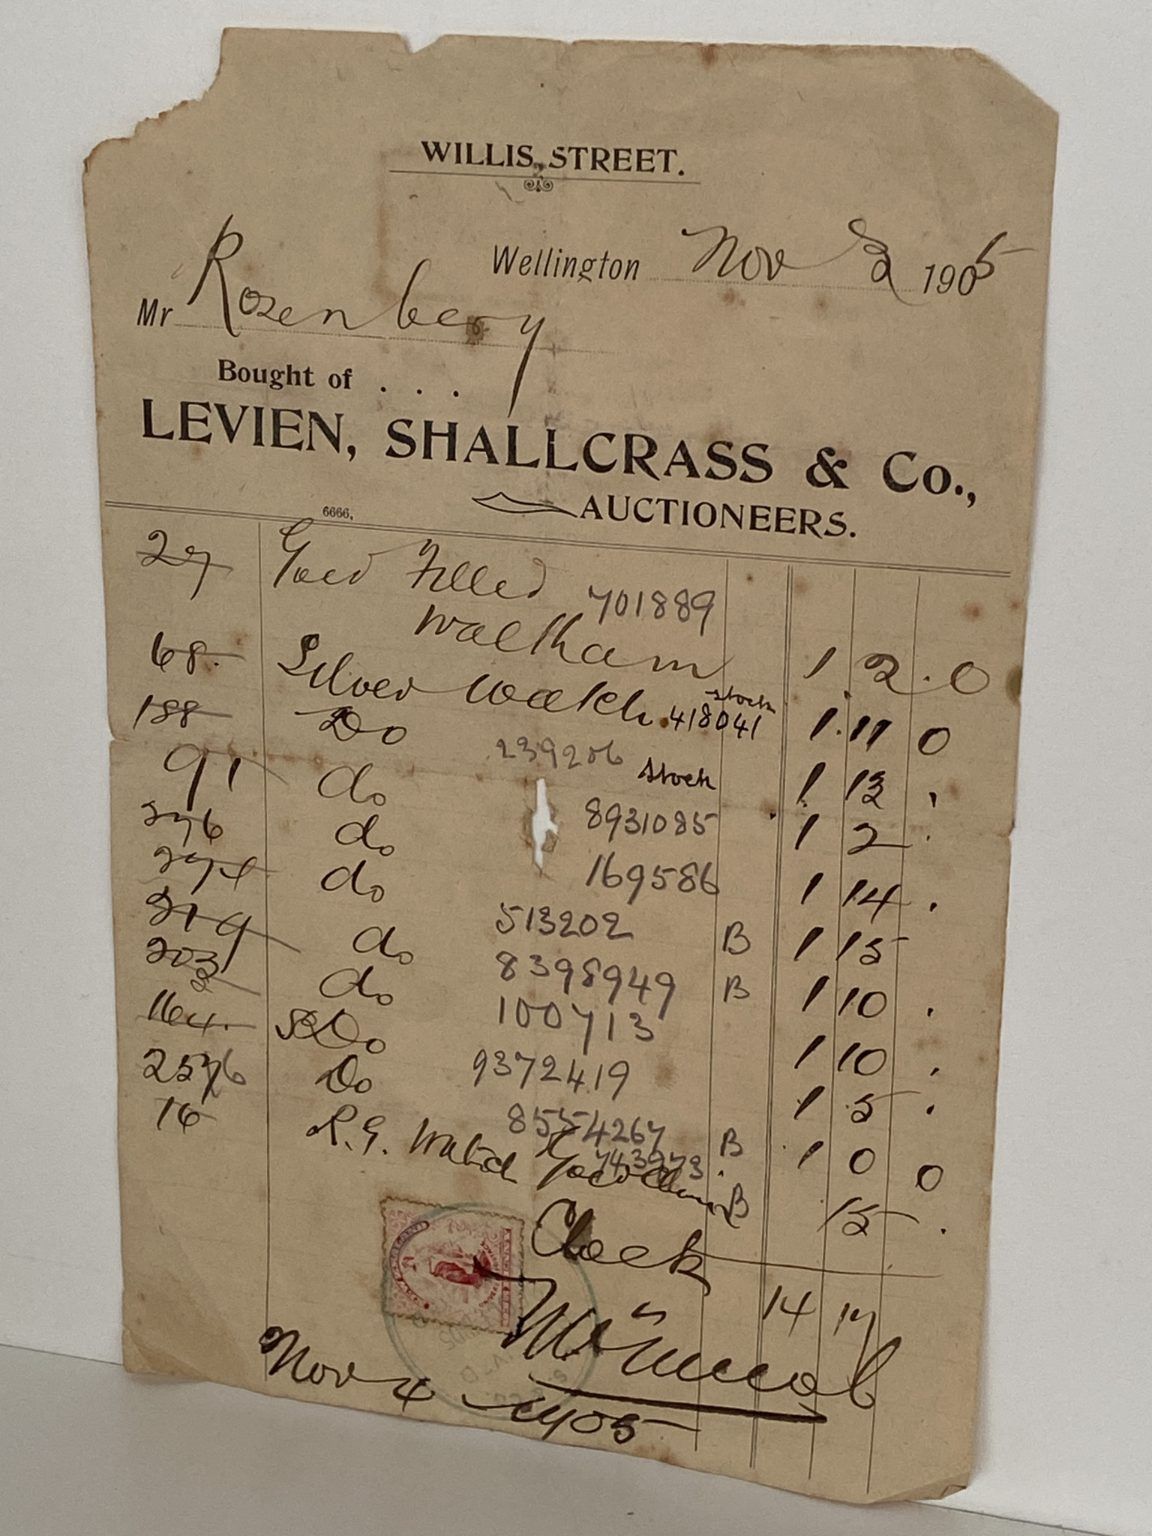 WILLIS STREET.
Wellington Nov 2 1905
Mr Rosenberg
Bought of . . .
LEVIEN, SHALLCRASS & Co.,
AUCTIONEERS.
6666,
27 Gold Filled 701889
Waltham 1 2. 0
68. Silver Watch stock 418041 1. 11 0
188 Do 239206 stock 1 13 .
91 do 8931085 1 2 .
276 do 169586 1 14 .
274 do 513202 B 1 15
219 do 8398949 B 1 10 .
203 do 100713 1 10 .
164. Do 9372419 1 5 .
Do 8554267 B 1 0 0
16 R.G. Watch 743973 B 15 .
Clock
14 17
Nov 4 1905